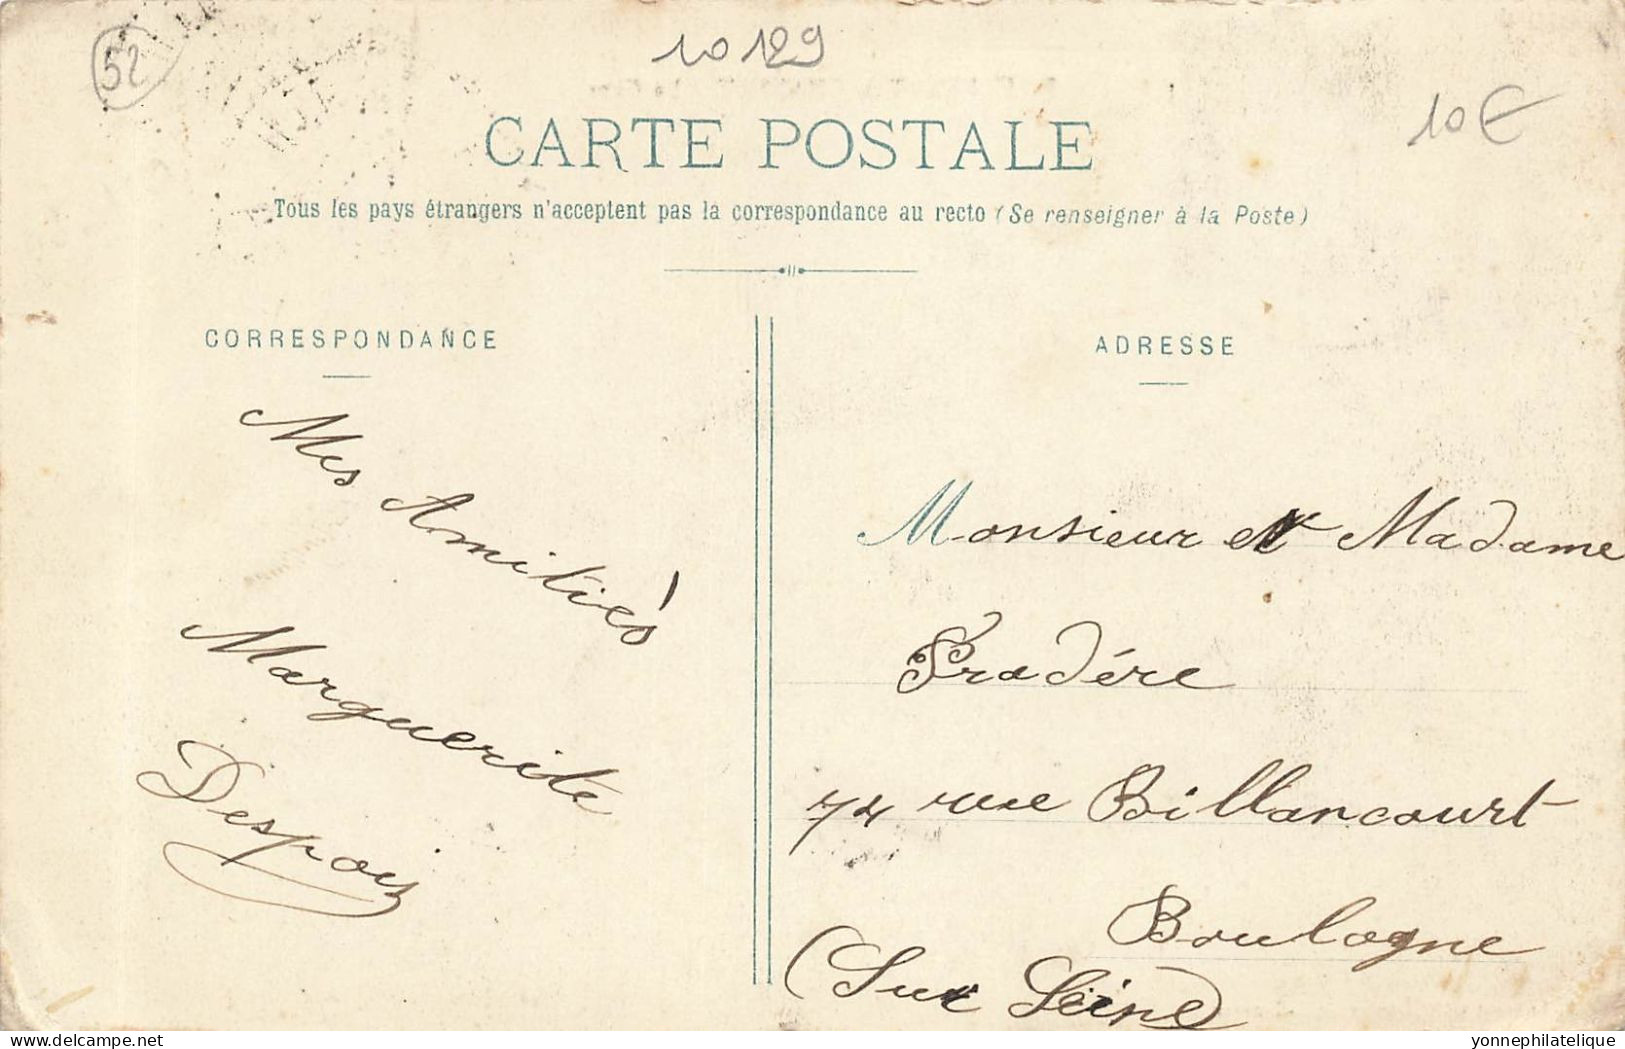 52
10129
10€
CARTE POSTALE
Tous les pays étrangers n'acceptent pas la correspondance au recto (Se renseigner à la Poste)
CORRESPONDANCE
Mes Amitiés
Marguerite
Despois
ADRESSE
Monsieur et Madame
Pradére
74 rue Billancourt
Boulogne
(Sur Seine)
yonnephilatelique